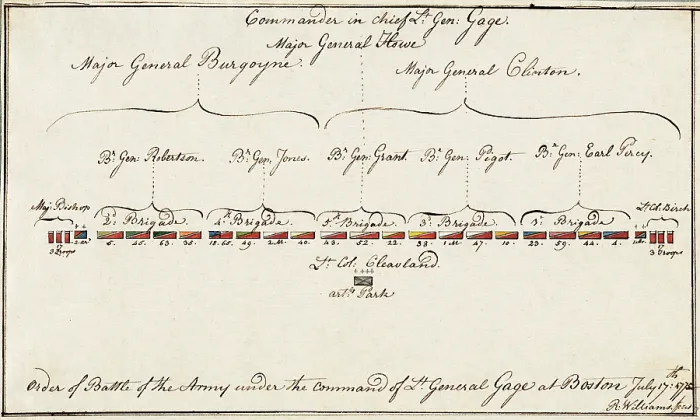 Commander in chief Lt. Gen: Gage.
Major General Howe
Major General Burgoyne.
Major General Clinton.
Br. Gen: Robertson.
Br. Gen. Jones.
Br. Gen: Grant.
Br. Gen: Pigot.
Br. Gen: Earl Percy.
Maj: Bishop
2d. Brigade.
4th. Brigade.
5th. Brigade.
3d. Brigade.
1st. Brigade.
Lt. Col. Birch
5. 45. 63. 35. 18. 65. 49. 2.M. 40. 43. 52. 22. 38. 1.M 47. 10. 23. 59. 44. 4.
17
3 Troops
17
3 Troops
Lt. Col: Cleavland.
arty. Park
Order of Battle of the Army under the command of Lt. General Gage at Boston July 17th: 1775
R. Williams